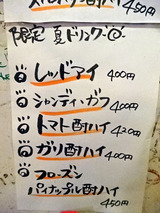 450円
限定 夏ドリンク
レッドアイ 400円
シャンディ・ガフ 400円
トマト酎ハイ 420円
ガリ酎ハイ 400円
フローズン
パイナップル酎ハイ
450円